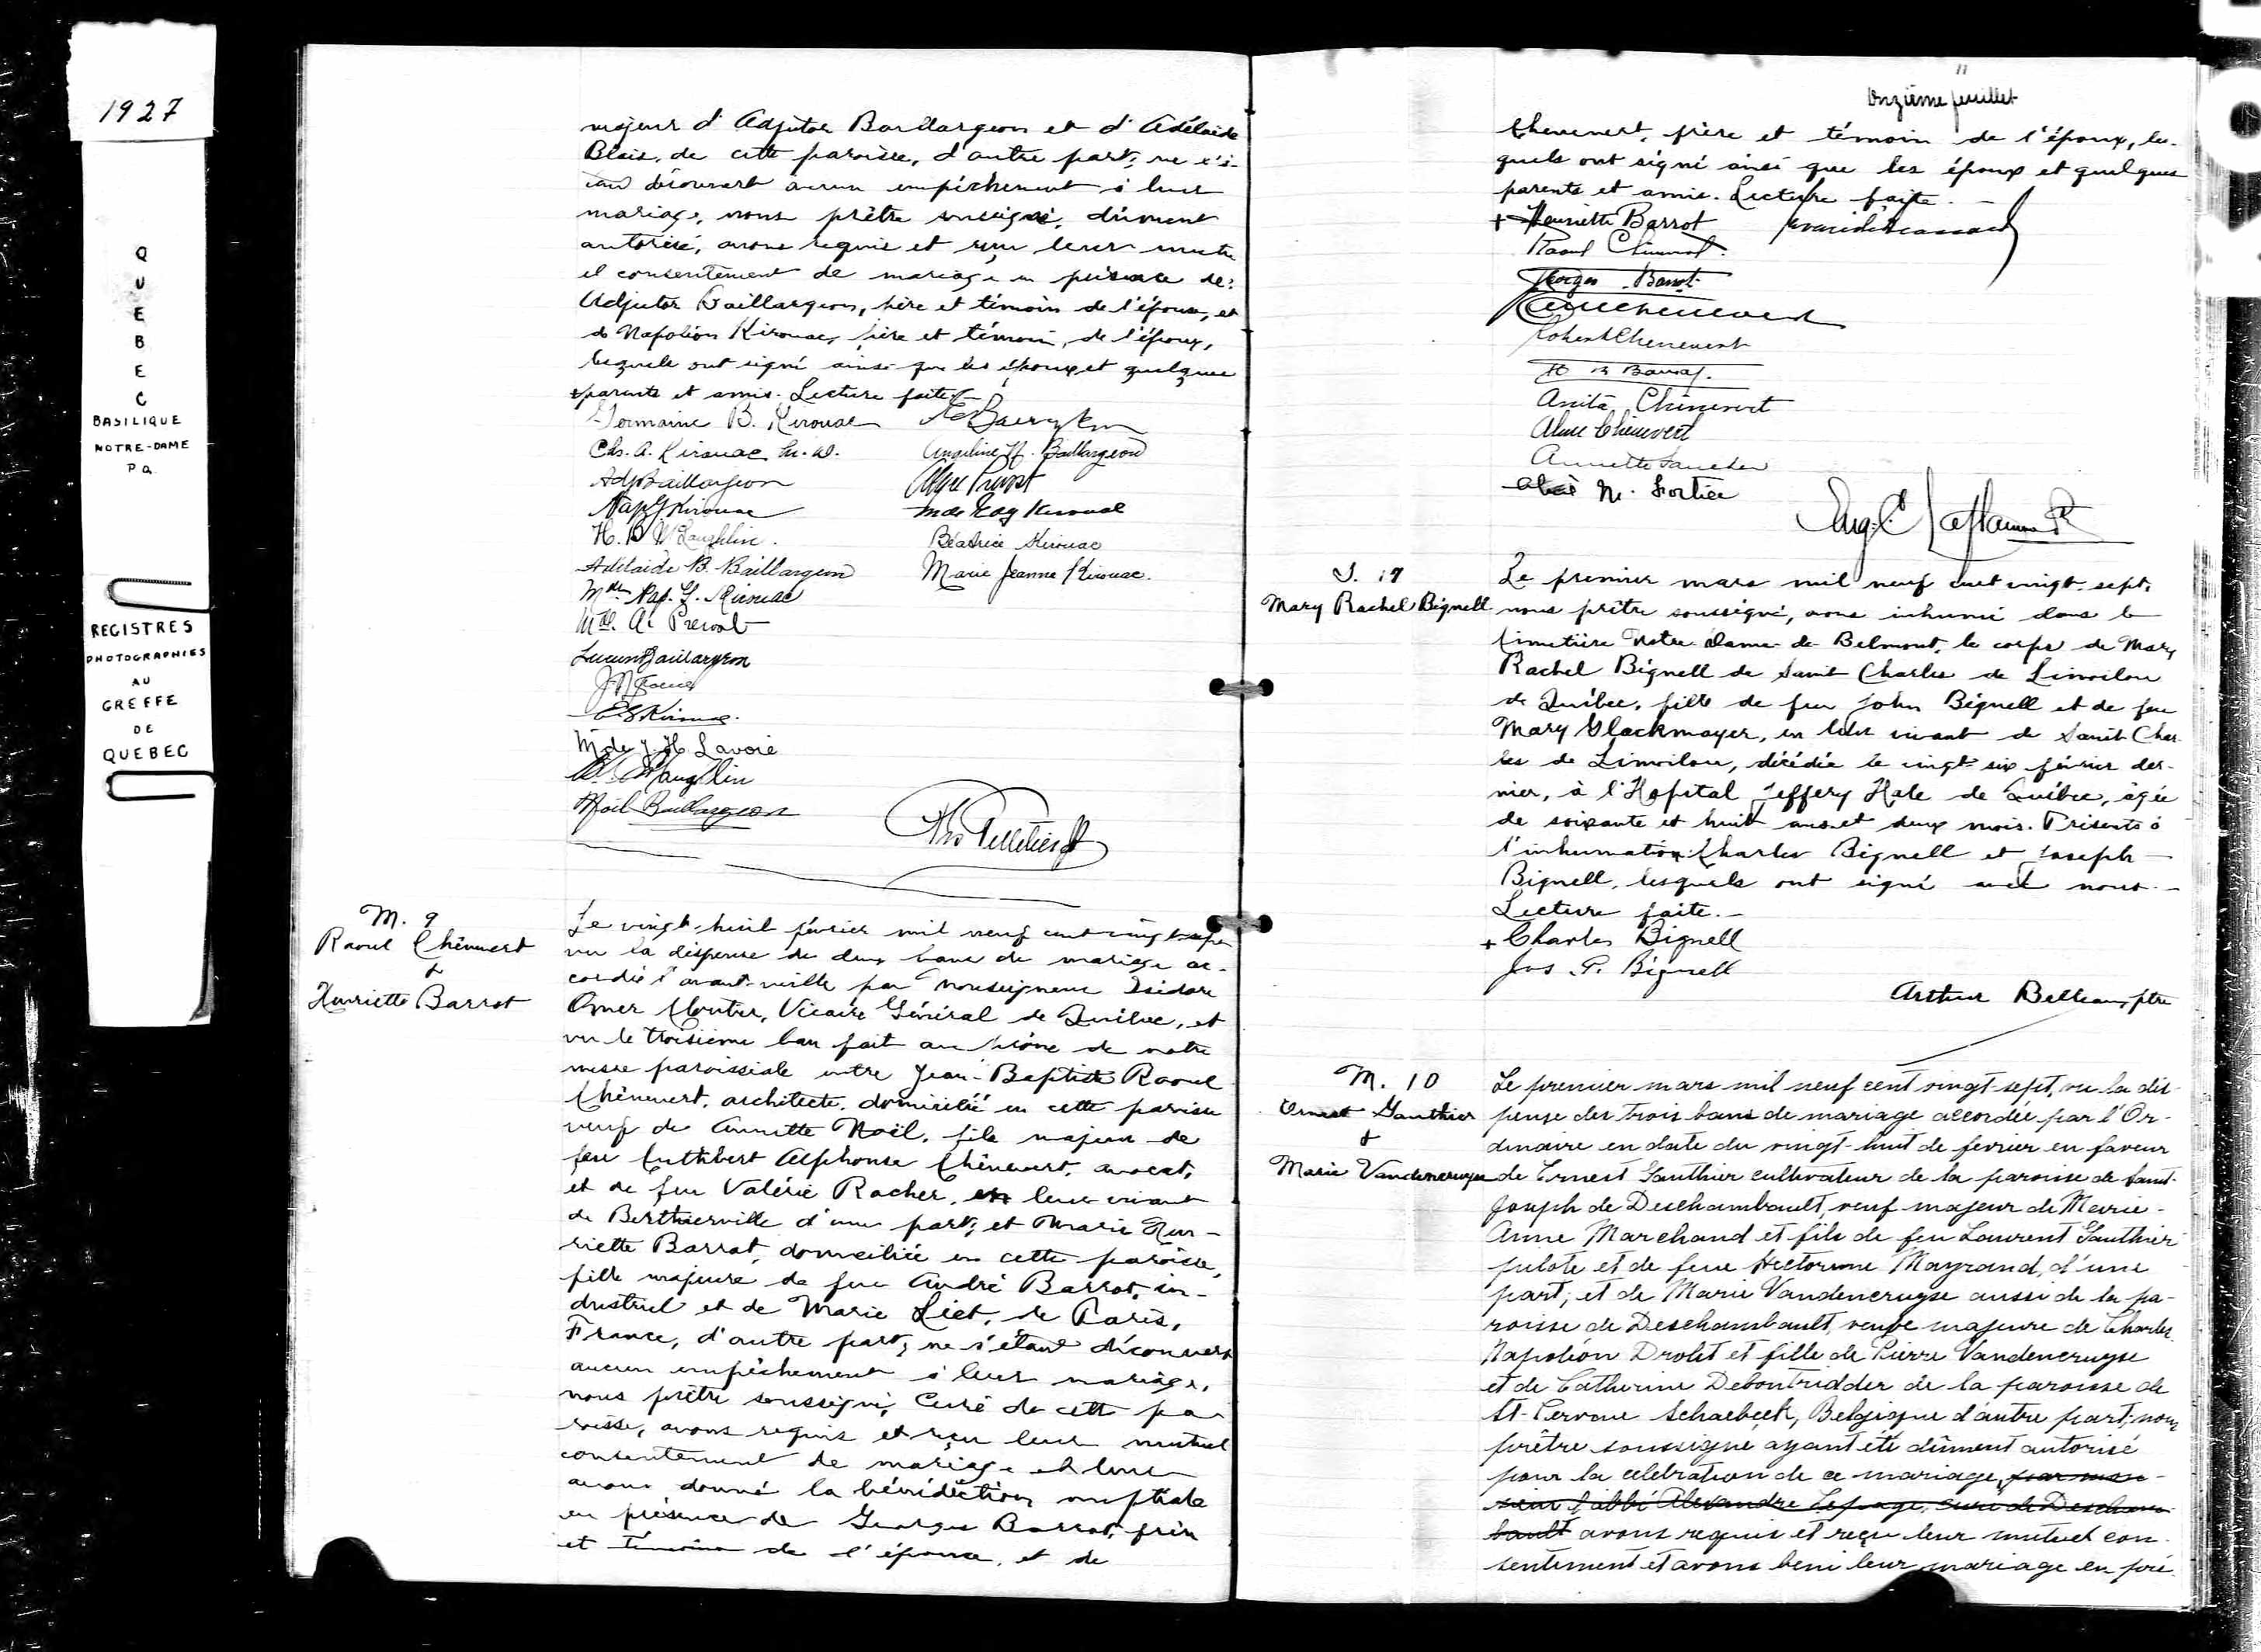 1927
Q
U
E
B
E
C
BASILIQUE
NOTRE-DAME
P.Q.
REGISTRES
PHOTOGRAPHIES
AU
GREFFE
DE
QUEBEC
majeur d'Adjutor Baillargeon et d'Adélaide
Blais, de cette paroisse, d'autre part; ne s'é-
tant découvert aucun empêchement à leur
mariage, nous prêtre soussigné, dûment
autorisé, avons requis et reçu leur mutu
el consentement de mariage en présence de:
Adjutor Baillargeon, père et témoin de l'épouse, et
de Napoléon Kirouac, père et témoin, de l'époux,
lesquels ont signé ainsi que les époux et quelques
parents et amis. Lecture faite.
Germaine B. Kirouac
Chs. A. Kirouac M.D. Angéline H. Baillargeon
Adj Baillargeon
Nap G Kirouac
H. B McLaughlin. Béatrice Kirouac
Adélaide B. Baillargeon Marie Jeanne Kirouac.
Mde Nap. G. Kirouac
Mde. A. Prevost
Lucien Baillargeon
Mde J. H. Lavoie
Noël Baillargeon
Ths Pelletier Pt
M. 9
Raoul Chênevert
&
Henriette Barrot
Le vingt-huit février mil neuf cent vingt-sept
vu la dispense de deux bans de mariage ac-
cordée l'avant-veille par Monseigneur Isidore
Omer Cloutier, Vicaire Général de Québec, et
vu le troisième ban fait au prône de notre
messe paroissiale entre Jean-Baptiste Raoul
Chênevert, architecte, domicilié en cette paroisse
veuf de Annette Noël, fils majeur de
feu Cuthbert Alphonse Chênevert, avocat,
et de feu Valérie Rocher, en leur vivant
de Berthierville d'une part; et Marie Hen-
riette Barrot, domiciliée en cette paroisse,
fille majeure de feu André Barrot, in-
dustriel et de Marie Liet, de Paris,
France, d'autre part; ne s'étant découvert
aucun empêchement à leur mariage,
nous prêtre soussigné, Curé de cette pa-
roisse, avons requis et reçu leur mutuel
consentement de mariage et leur
avons donné la bénédiction nuptiale
en présence de Georges Barrot, frère
et témoin de l'épouse, et de
11
Onzième feuillet
Chenevert, frère et témoin de l'époux, les-
quels ont signé ainsi que les époux et quelques
parents et amis. Lecture faite.
+ Henriette Barrot
Raoul Chênevert
Georges Barrot
Robert Chenevert
Anita Chênevert
Aline Chênevert
Annette
N. Fortier
Eug. C. Laflamme Pt
S. 17
Mary Rachel Bignell
Le premier mars mil neuf cent vingt-sept,
nous prêtre soussigné, avons inhumé dans le
Cimetière Notre-Dame-de-Belmont, le corps de Mary
Rachel Bignell de Saint Charles de Limoilou
de Québec, fille de feu John Bignell et de feu
Mary Glackmayer, en leur vivant de Saint Char-
les de Limoilou, décédée le vingt-six février der-
nier, à l'Hopital Jeffery Hale de Québec, âgée
de soixante et huit ans et deux mois. Présents à
l'inhumation: Charles Bignell et Joseph
Bignell, lesquels ont signé avec nous.
Lecture faite.
+ Charles Bignell
Jos. P. Bignell
Arthur Belleau, ptre
M. 10
Ernest Gauthier
&
Marie Vandencruyse
Le premier mars mil neuf cent vingt sept, vu la dis-
pense des trois bans de mariage accordée par l'Or-
dinaire en date du vingt-huit de fevrier en faveur
de Ernest Gauthier cultivateur de la paroisse de Saint-
Joseph de Deschambault, veuf majeur de Marie-
Anne Marchand et fils de feu Laurent Gauthier
pilote et de feue Hectorine Mayrand, d'une
part; et de Marie Vandencruyse aussi de la pa-
roisse de Deschambault, veuve majeure de Charles
Napoléon Drolet et fille de Pierre Vandencruyse
et de Catherine Debontridder de la paroisse de
St-Servais Schaebeek, Belgique d'autre part; nous
prêtre soussigné ayant été dûment autorisé
pour la célébration de ce mariage, par mon-
sieur l'abbé Alexandre Lepage, curé de Descham-
bault avons requis et reçu leur mutuel con-
sentement et avons beni leur mariage en pré-